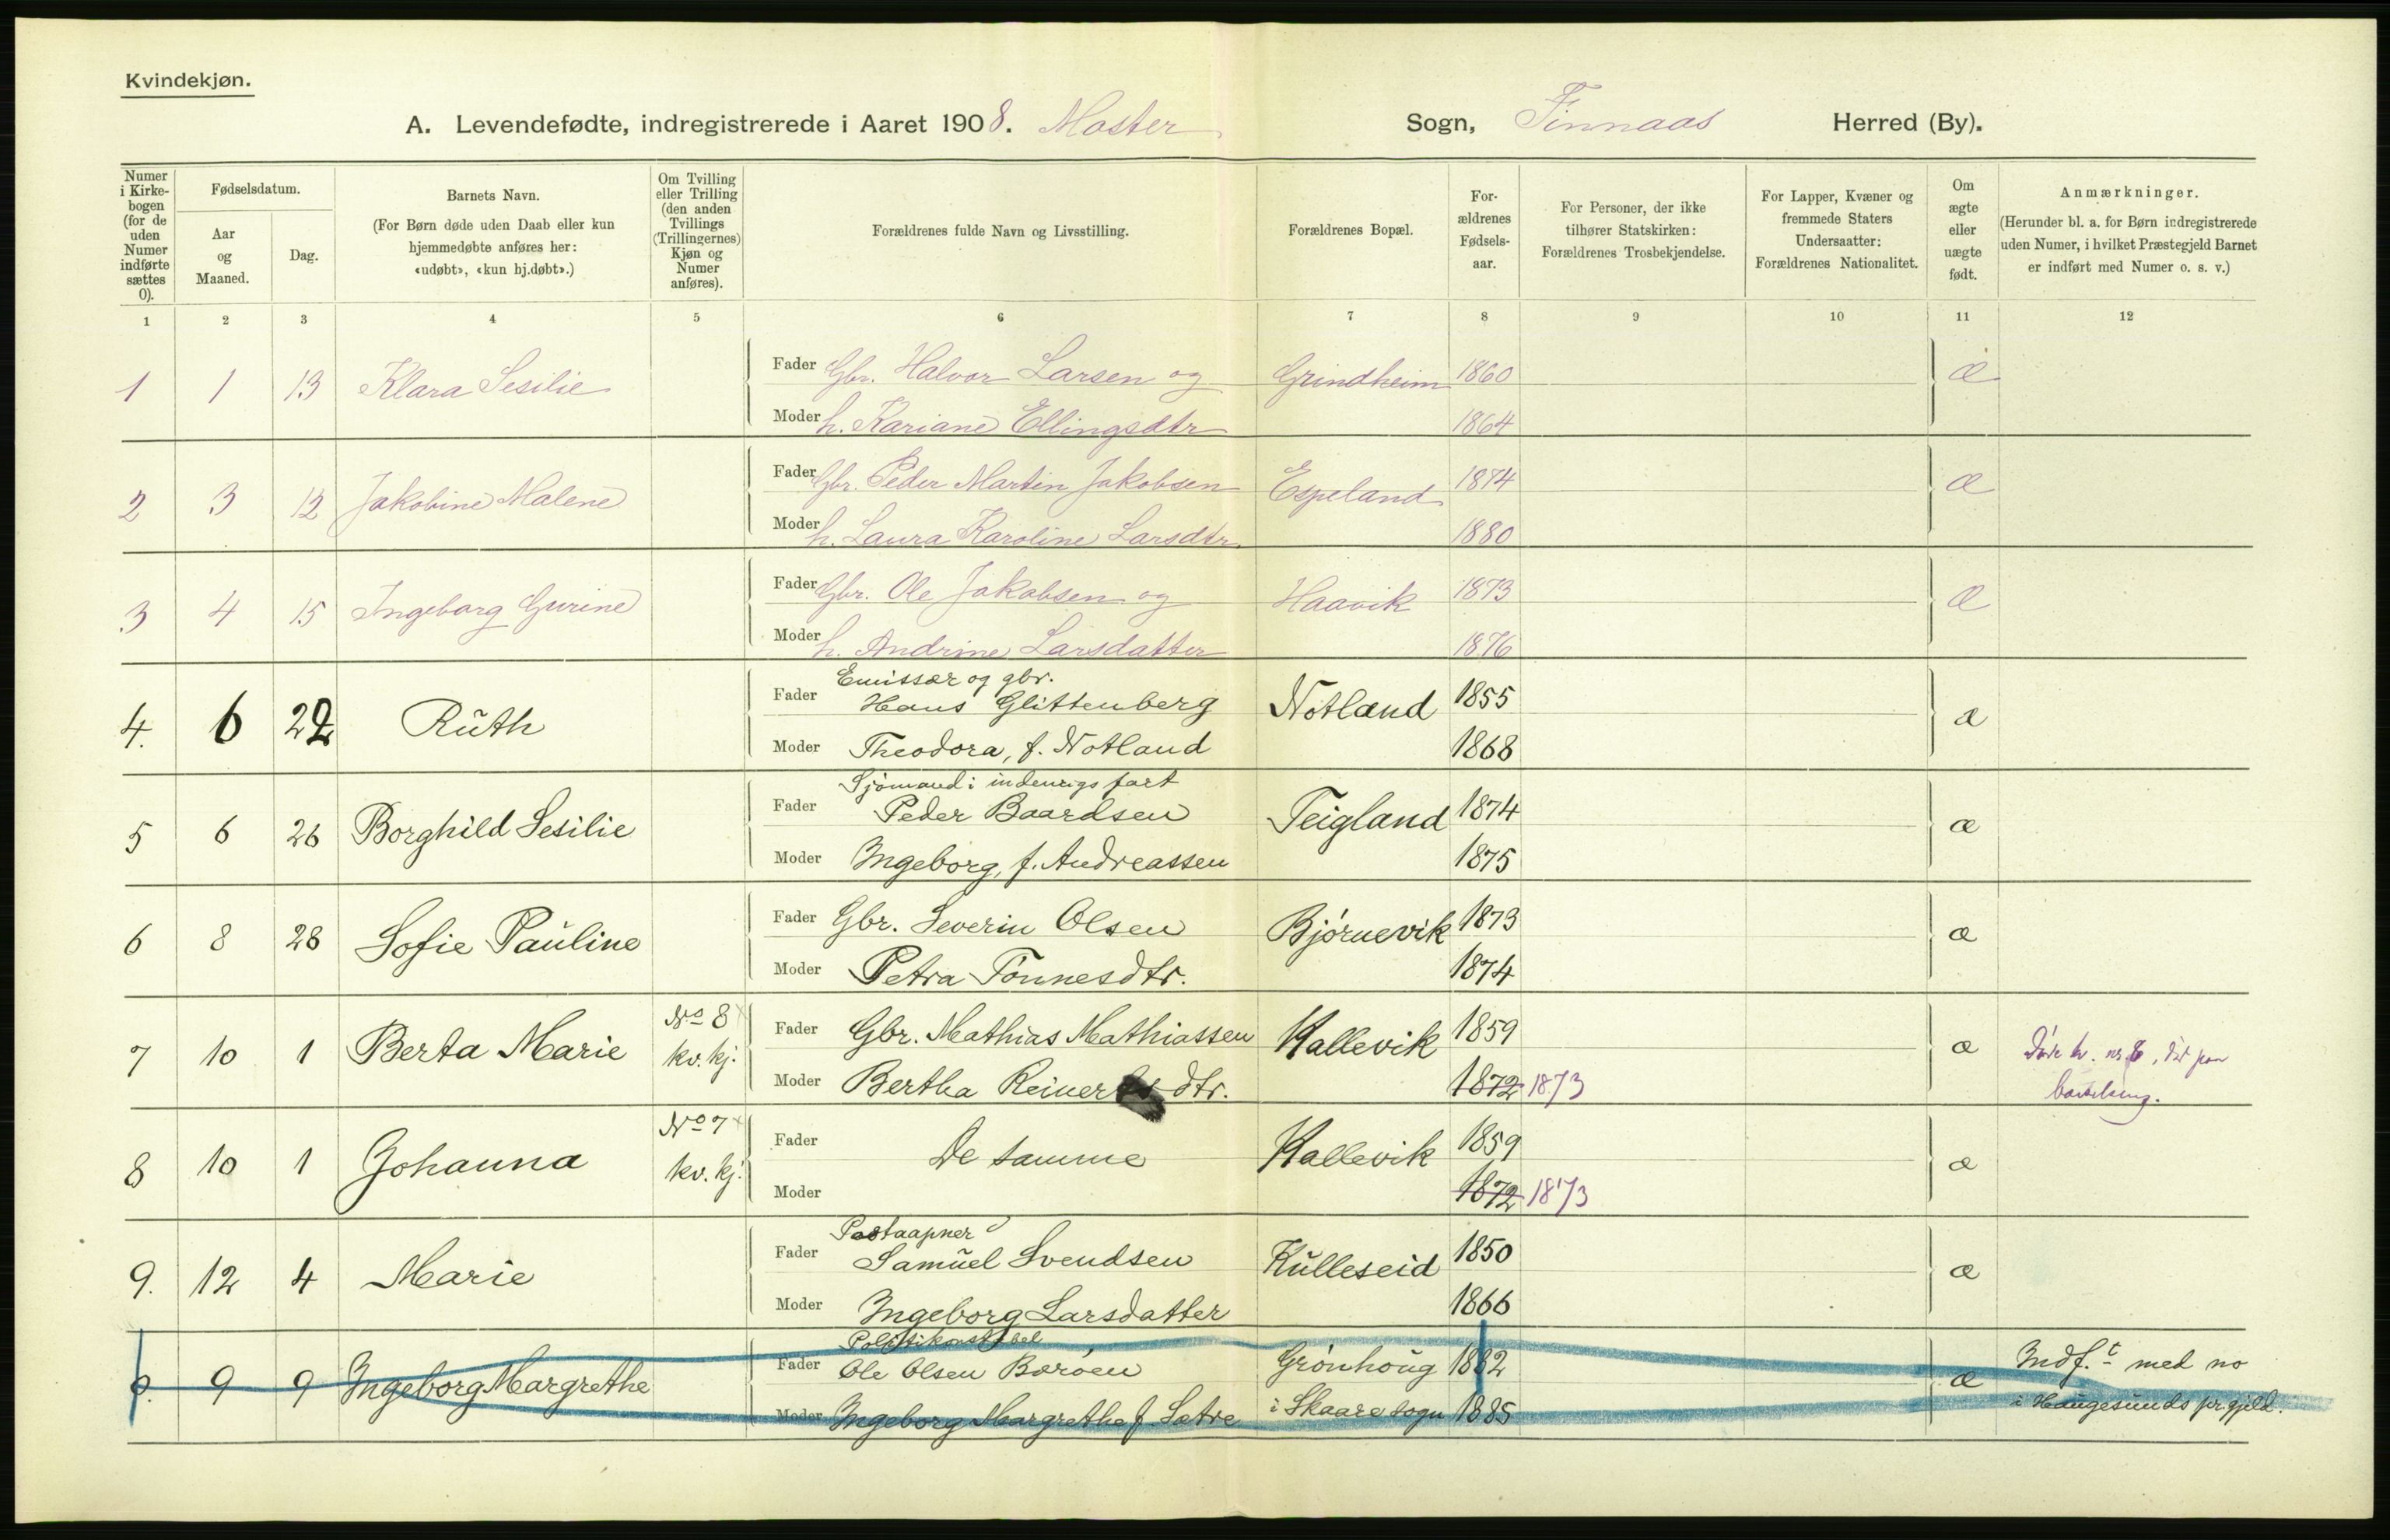 Kvindekjøn.
A. Levendefødte, indregistrerede i Aaret 1908. Moster Sogn, Finnaas Herred (By).
Numer i Kirkebogen (for de uden Numer indførte sættes 0).
Fødselsdatum.
Aar og Maaned.
Dag.
Barnets Navn.
(For Børn døde uden Daab eller kun hjemmedøbte anføres her: «udøbt», «kun hj.døbt».)
Om Tvilling eller Trilling (den anden Tvillings (Trillingernes) Kjøn og Numer anføres).
Forældrenes fulde Navn og Livsstilling.
Forældrenes Bopæl.
Forældrenes Fødselsaar.
For Personer, der ikke tilhører Statskirken: Forældrenes Trosbekjendelse.
For Lapper, Kvæner og fremmede Staters Undersaatter: Forældrenes Nationalitet.
Om ægte eller uægte født.
Anmærkninger.
(Herunder bl. a. for Børn indregistrerede uden Numer, i hvilket Præstegjeld Barnet er indført med Numer o. s. v.)
1 2 3 4 5 6 7 8 9 10 11 12
1 1 13 Klara Sesilie Fader Gbr. Halvor Larsen og Grindheim 1860 æ
Moder h. Kariane Ellingsdtr 1864
2 3 12 Jakobine Malene Fader Gbr. Peder Martin Jakobsen Espeland 1874 æ
Moder h. Laura Karoline Larsdtr. 1880
3 4 15 Ingeborg Gurine Fader Gbr. Ole Jakobsen og Haavik 1873 æ
Moder h. Andrine Larsdatter 1876
Emissær og gbr.
4. 6 22 Ruth Fader Hans Glittenberg Notland 1855 æ
Moder Theodora, f. Notland 1868
Sjömand i indenrigs fart
5 6 26 Borghild Sesilie Fader Peder Baardsen Teigland 1874 æ
Moder Ingeborg, f. Andreassen 1875
6 8 28 Sofie Pauline Fader Gbr. Severin Olsen Bjórnevik 1873 æ
Moder Petra Tönnesdtr. 1874
7 10 1 Berta Marie No 8 kv. kj. Fader Gbr. Mathias Mathiassen Kallevik 1859 æ
Moder Bertha Reinertsdtr. 1872 1873
8 10 1 Johanna No 7 kv. kj. Fader De samme Kallevik 1859 æ
Moder 1872 1873
Postaapner
9. 12 4 Marie Fader Samuel Svendsen Kulleseid 1850 æ
Moder Ingeborg Larsdatter 1866
Politikonstabel
0. 9 9 Ingeborg Margrethe Fader Ole Olsen Børöen Grönhoug 1882 æ Indf.t med no
Moder Ingeborg Margrethe f Sætre i Skaare sogn 1885 i Haugesunds pr.gjeld.